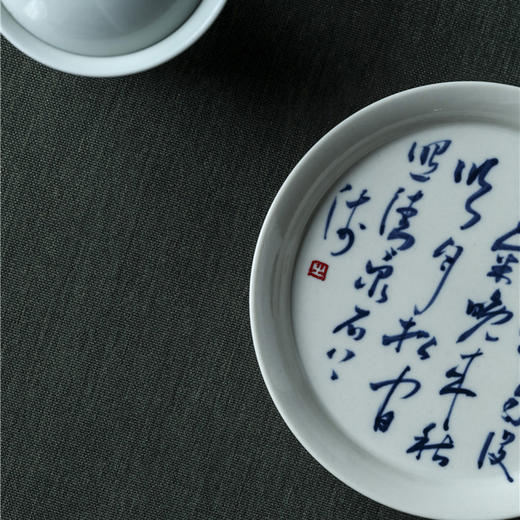 後
氣晚来秋
明月松間
照清泉石上
流